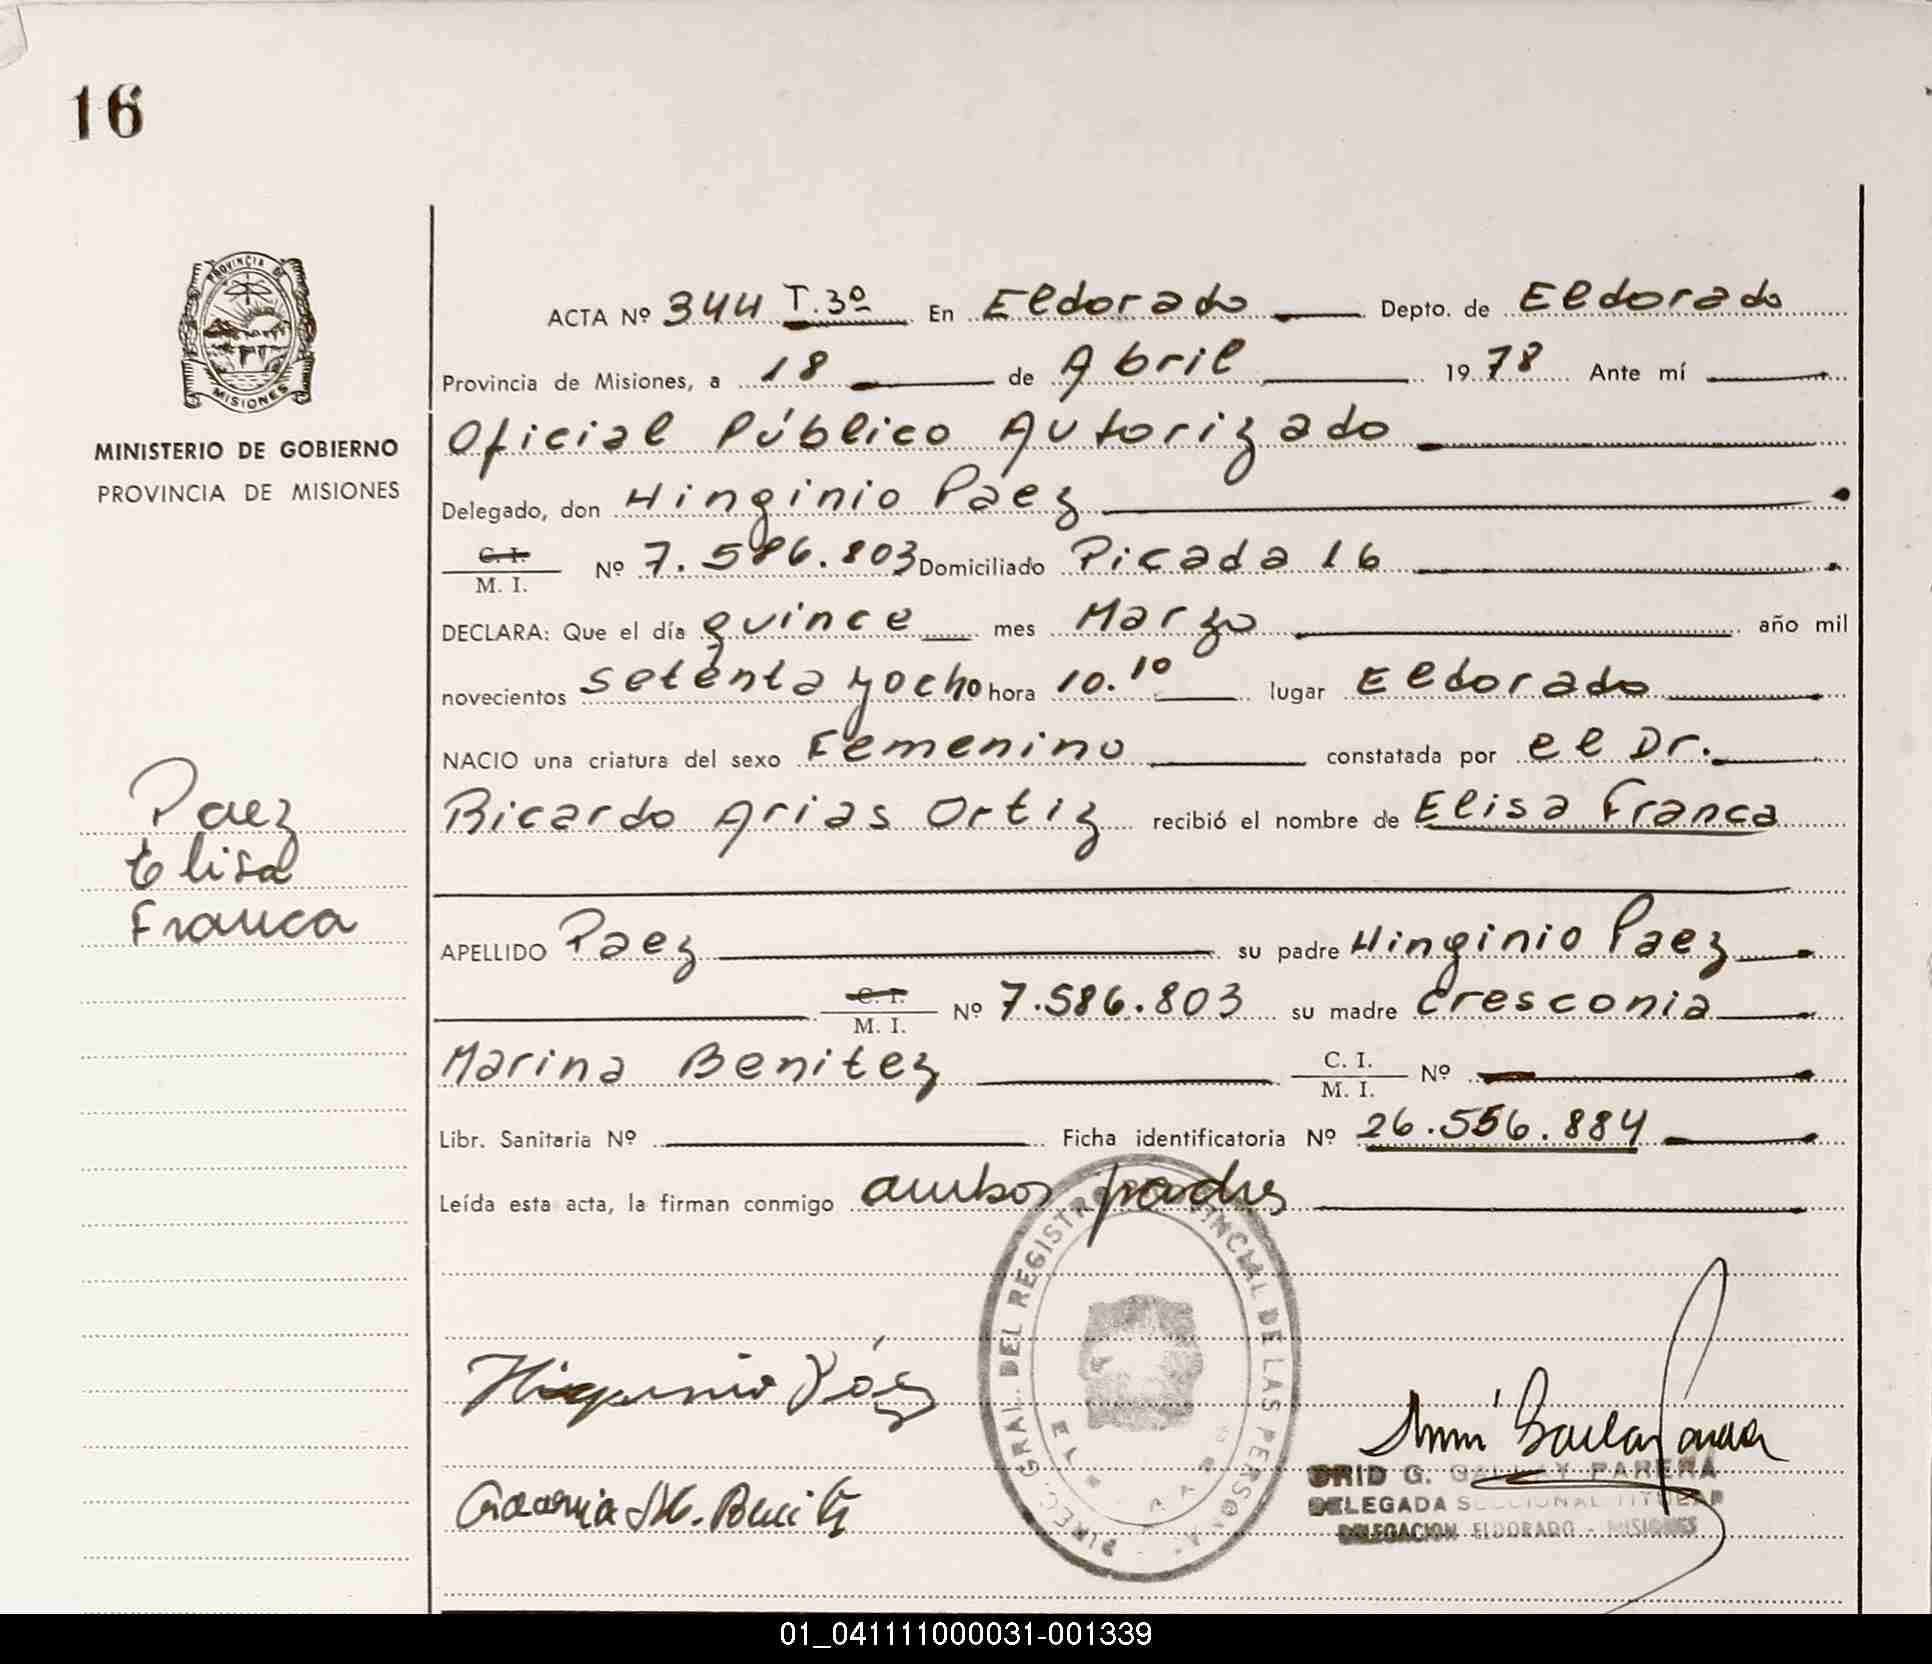 16
PROVINCIA DE
MISIONES
MINISTERIO DE GOBIERNO
PROVINCIA DE MISIONES
Paez
Elisa
Franca
ACTA Nº 344 T.3º En Eldorado Depto. de Eldorado
Provincia de Misiones, a 18 de Abril 19 78 Ante mí
Oficial Público Autorizado
Delegado, don Hinginio Páez
C. I.
M. I. Nº 7.586.803 Domiciliado Picada 16
DECLARA: Que el día quince mes Marzo año mil
novecientos setenta y ocho hora 10.10 lugar Eldorado
NACIO una criatura del sexo Femenino constatada por el Dr.
Ricardo Arias Ortiz recibió el nombre de Elisa Franca
APELLIDO Paez su padre Hinginio Paez
C. I.
M. I. Nº 7.586.803 su madre Cresconia
Marina Benitez C. I.
M. I. Nº
Libr. Sanitaria Nº Ficha identificatoria Nº 26.556.884
Leída esta acta, la firman conmigo ambos padres
DIREC. GRAL. DEL REGISTRO PROVINCIAL DE LAS PERSONAS
Higinio Páez
G. PARERA
DELEGADA SECCIONAL TITULAR
DELEGACION ELDORADO - MISIONES
01_041111000031-001339